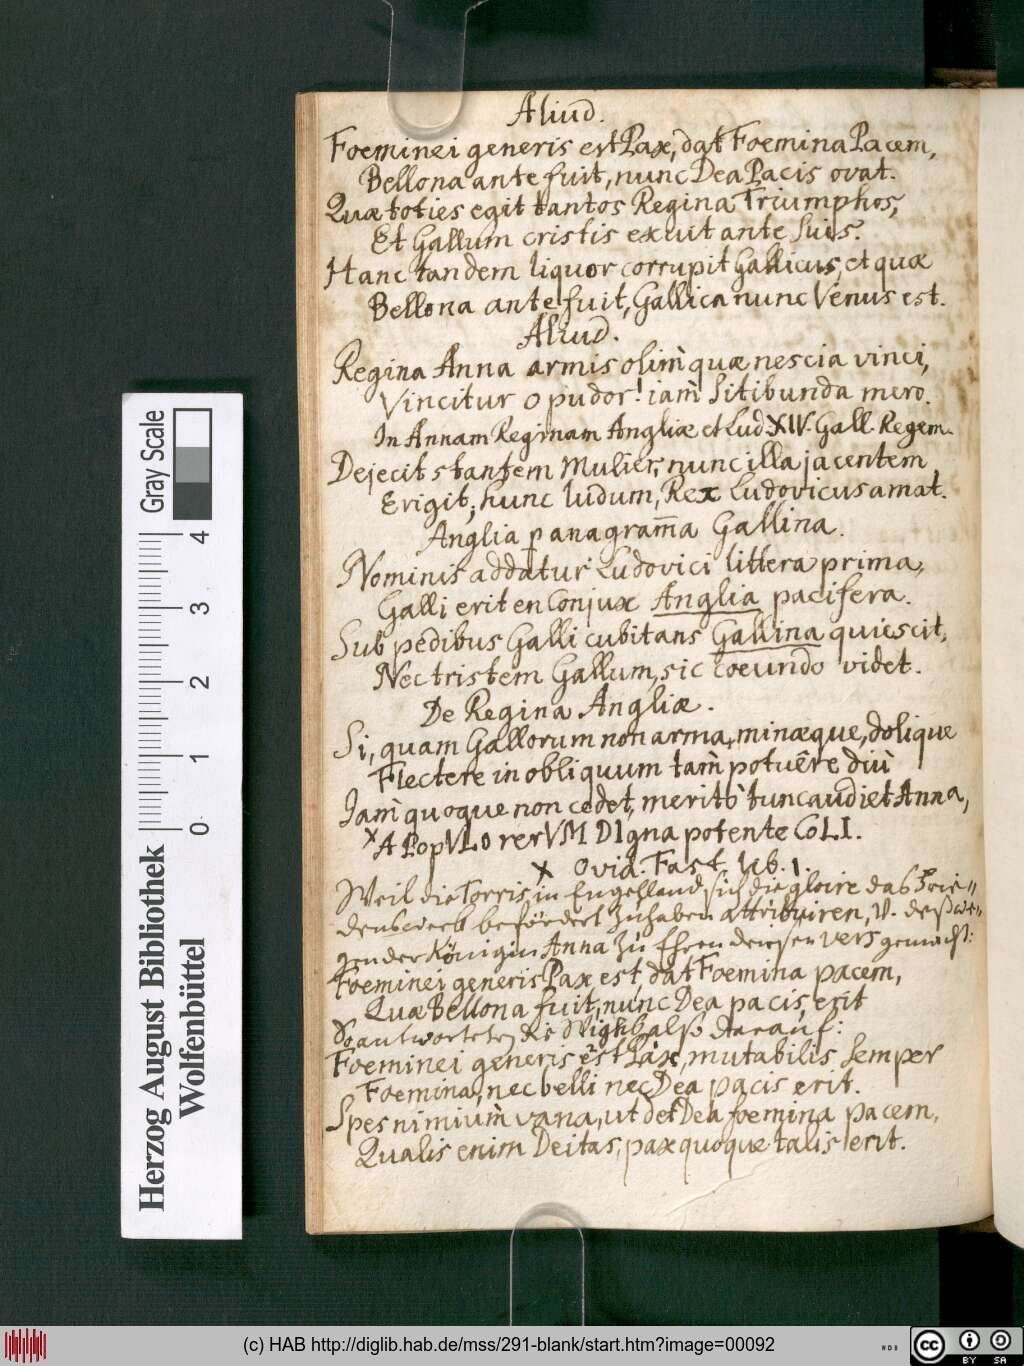 Aliud.
Foeminei generis est Pax, dat Foemina Pacem,
Bellona ante fuit, nunc Dea Pacis ovat.
Quæ toties egit tantos Regina Triumphos,
Et Gallum cristis exuit ante suis.
Hanc tandem liquor corrupit Gallicus, et quæ
Bellona ante fuit, Gallica nunc Venus est.
Aliud.
Regina Anna armis olim̀ quæ nescia vinci,
Vincitur o pudor! iam̀ sitibunda mero.
In Annam Reginam Angliæ et Lud XIV. Gall. Regem.
Dejecit stantem Mulier, nunc illa jacentem
Erigit; hunc ludum, Rex Ludovicus amat.
Anglia panagram̄a Gallina.
Nominis addatur Ludovici littera prima,
Galli erit en Conjux Anglia pacifera.
Sub pedibus Galli cubitans Gallina quiescit,
Nec tristem Gallum, sic coeundo videt.
De Regina Angliæ.
Si, quam Gallorum non arma, minæque, dolique
Flectere in obliquum tam̀ potuêre diù
Jam̀ quoque non cedet, meritò tunc audiet Anna,
x A PopVLo rerVM DIgna potente CoLI.
x Ovid. Fast. lib. 1.
Weil die Torris in Engelland sich die gloire das Frie=
denswerk befördert zu haben attribuiren, V. deßwe=
gen der Königin Anna zu Ehren diesen vers gemacht:
Foeminei generis Pax est, dat Foemina pacem,
Quæ Bellona fuit, nunc Dea pacis erit
So antworteten die Wighs alß darauf:
Foeminei generis est Pax, mutabilis semper
Foemina, nec belli nec Dea pacis erit.
Spes nimium̀ vana, ut det Dea foemina pacem,
Qualis enim Deitas, pax quoque talis erit.
Gray Scale
0 1 2 3 4
Herzog August Bibliothek
Wolfenbüttel
(c) HAB http://diglib.hab.de/mss/291-blank/start.htm?image=00092
WDB
cc BY SA